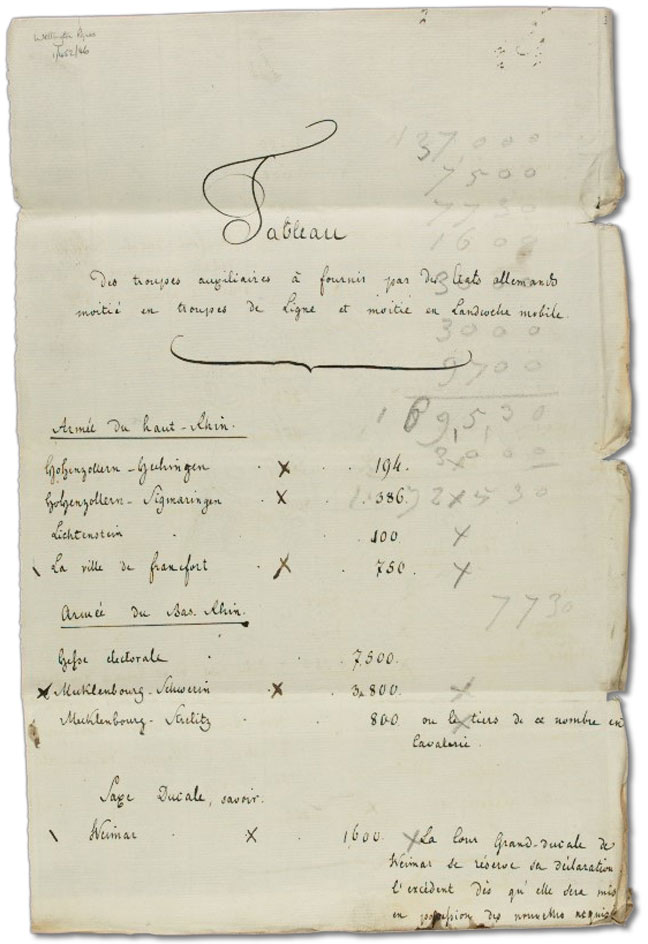 Wellington Papers
1/452/46
137,000
7500
7730
1608
3000
9700
169,530
3000
7730
Tableau
des troupes auxiliaires à fournir par des Etats allemands
moitié en troupes de Ligne et moitié en Landwehr mobile.
Armée du haut-Rhin.
Hohenzollern-Hechingen . x . . 194.
Hohenzollern-Sigmaringen x . . 386.
Lichtenstein . . . 100 x
\ La ville de francfort . x . 750. x
Armée du Bas-Rhin.
Hesse électorale . . 7,500.
x Mecklenbourg-Schwerin . x . 3,800. x
Mecklenbourg-Strelitz . . 800 ou le tiers de ce nombre en
Cavalerie.
Saxe Ducale, savoir.
\ Weimar . x . 1600. x La Cour Grand-ducale de
Weimar se réserve sa déclaration
l'excédent dès qu'elle sera mise
en possession des nouvelles